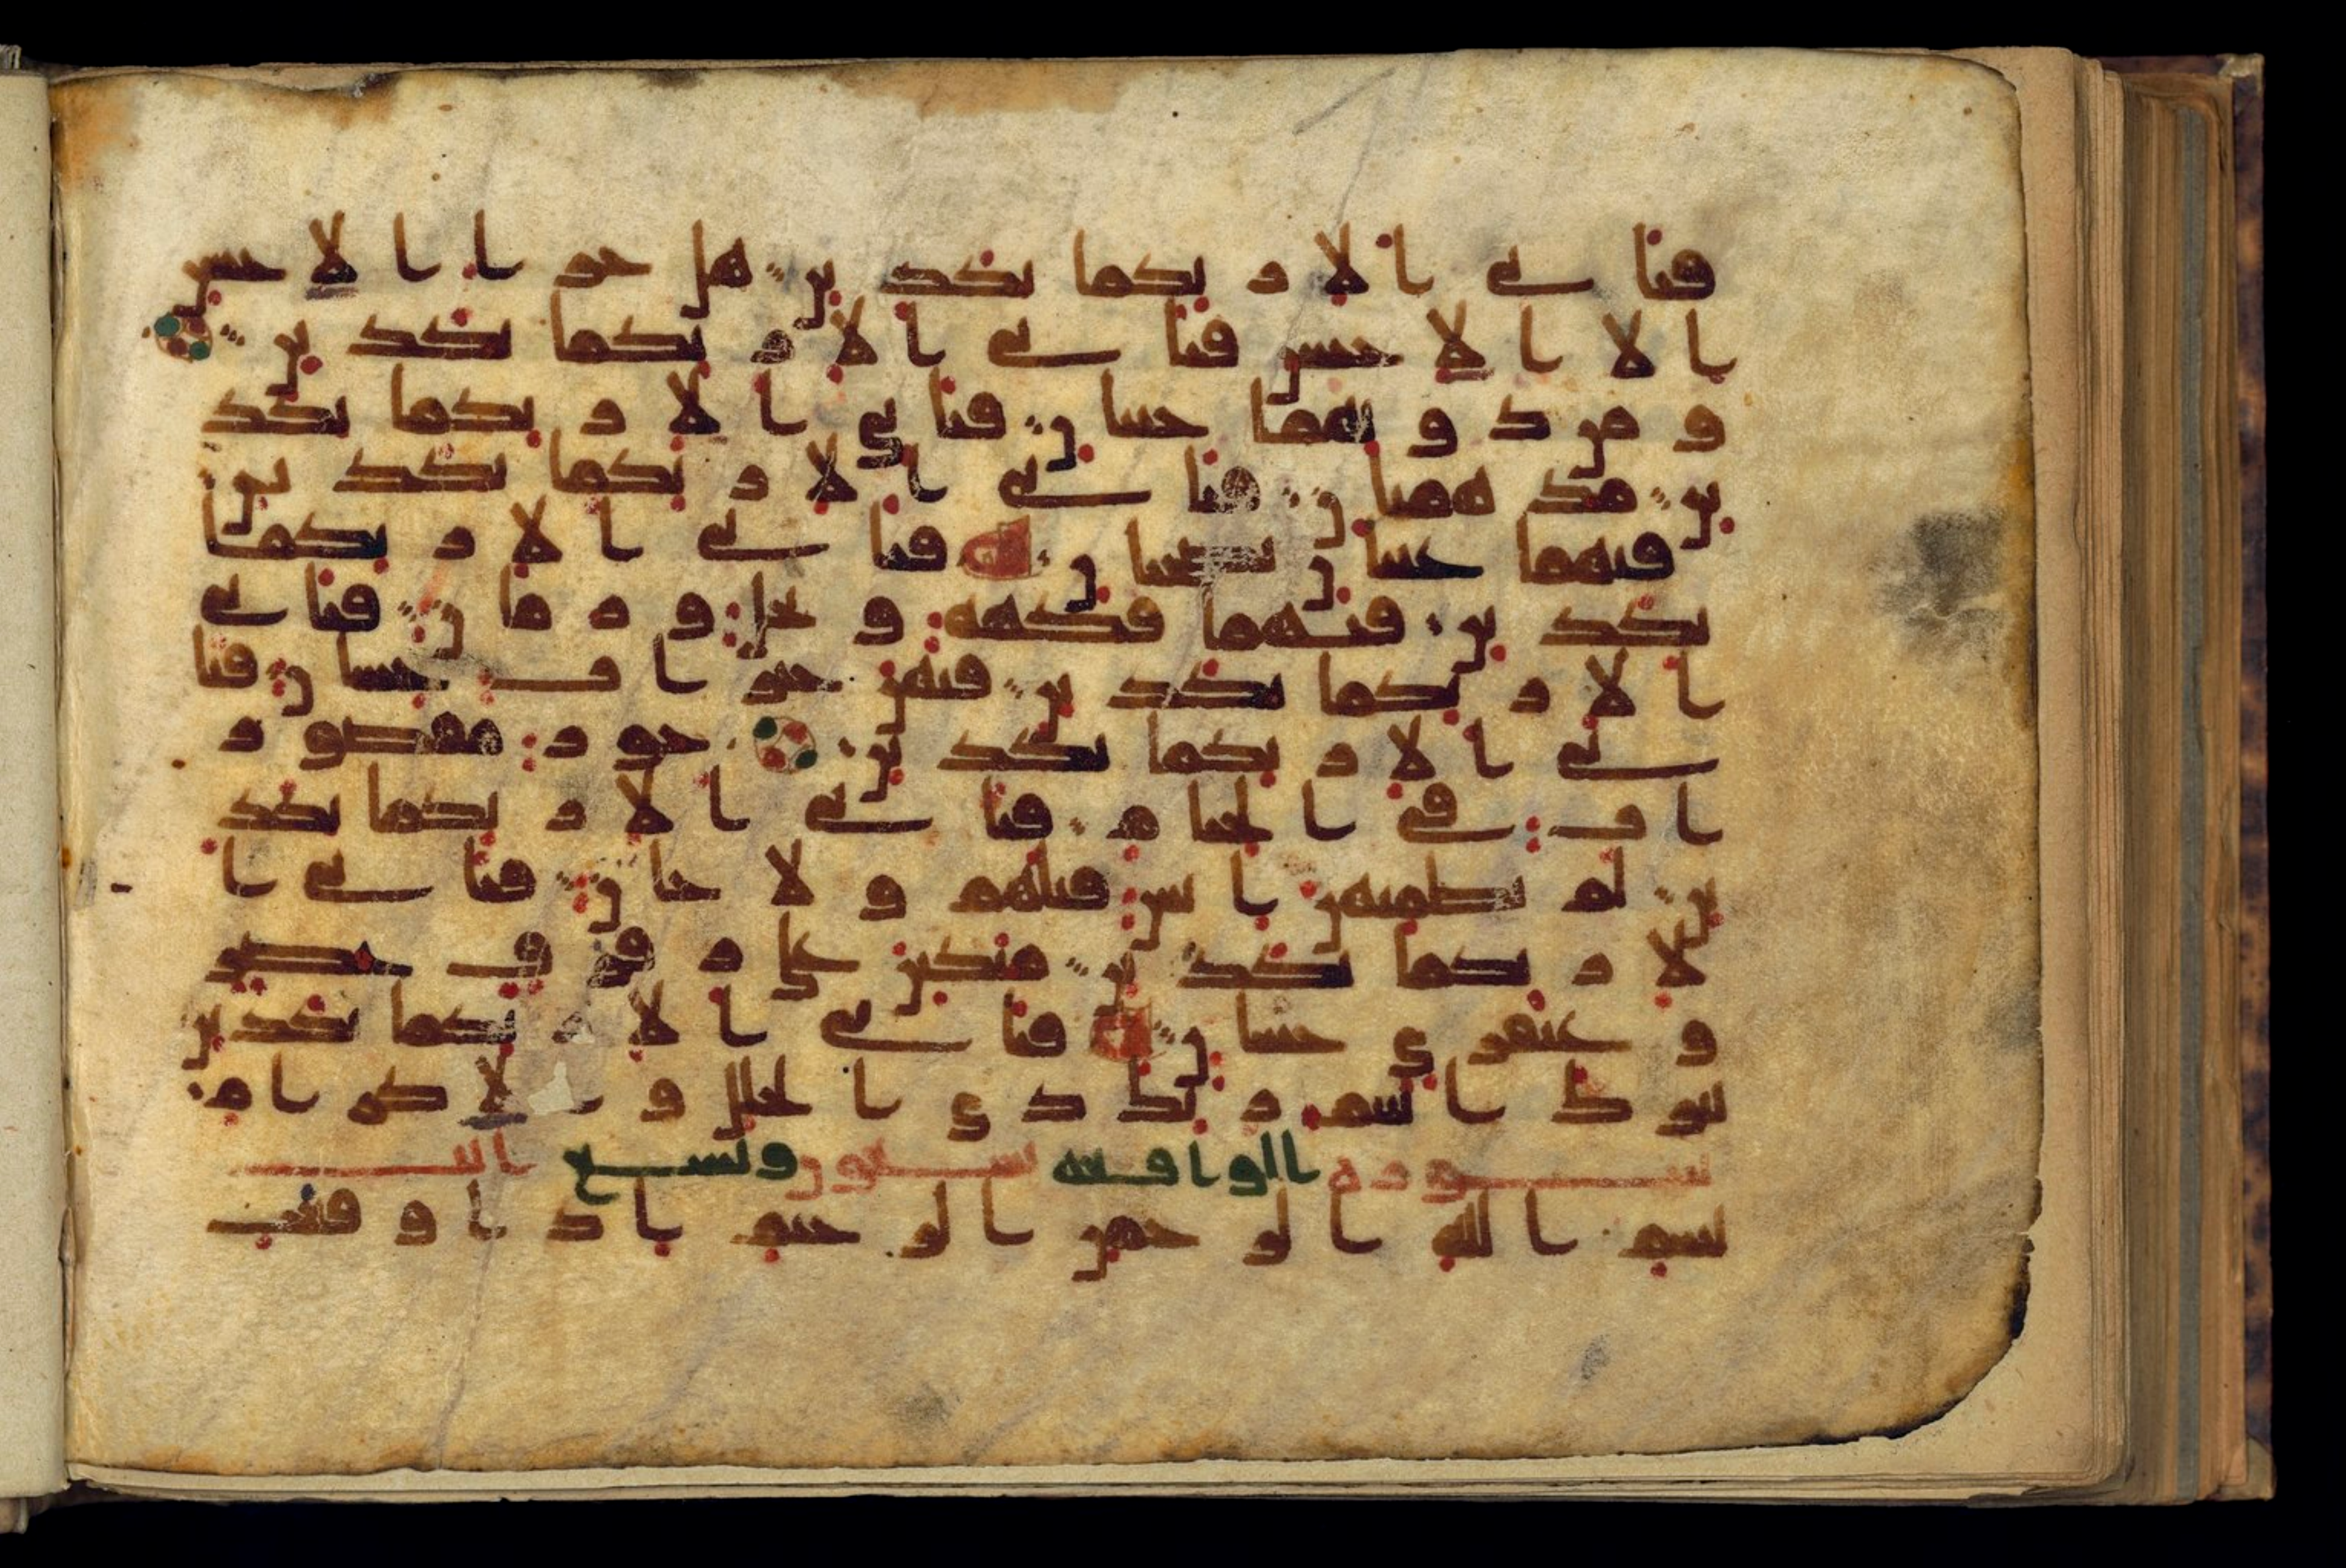 فبأى الا ربكما تكذبن هل جزا الاحسن
الا الاحسن فبأى الا ربكما تكذبن
و من دونهما جنتان فبأى الا ربكما تكذ
بن مدهمتان فبأى الا ربكما تكذبن
فيهما عينان نضختان فبأى الا ربكما
تكذبن فيهما فكهة و نخل و رمان فبأى
الا ربكما تكذبن فيهن خيرات حسان فبا
ى الا ربكما تكذبن حور مقصور
ات في الخيام فبأى الا ربكما تكذ
بن لم يطمثهن انس قبلهم و لا جان فبأى ا
لا ربكما تكذبن متكين على رفرف خضر
و عبقرى حسان فبأى الا ربكما تكذبن
تبرك اسم ربك ذى الجلل و الاكرام
سورة الواقعة تسعون وتسع ايت
بسم الله الرحمن الرحيم اذا وقعت